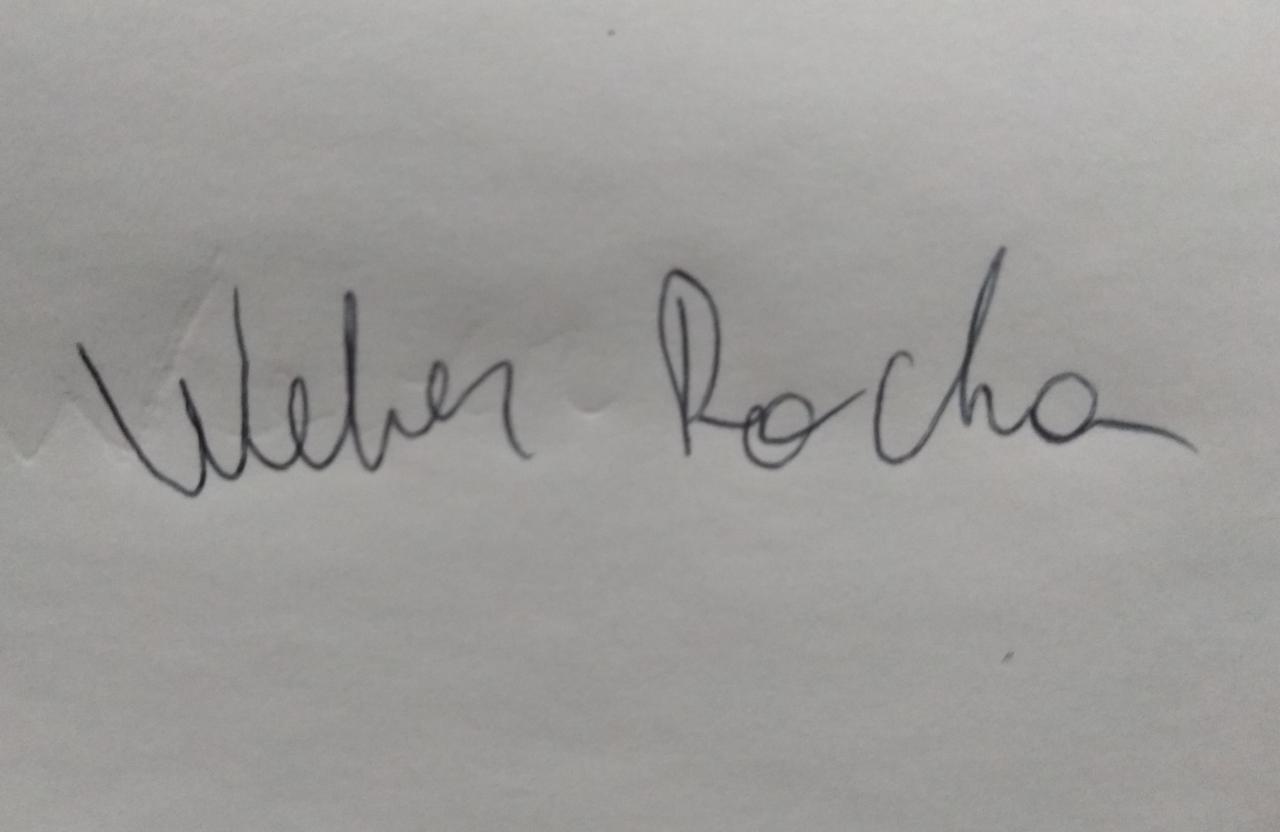 Weber Rocha